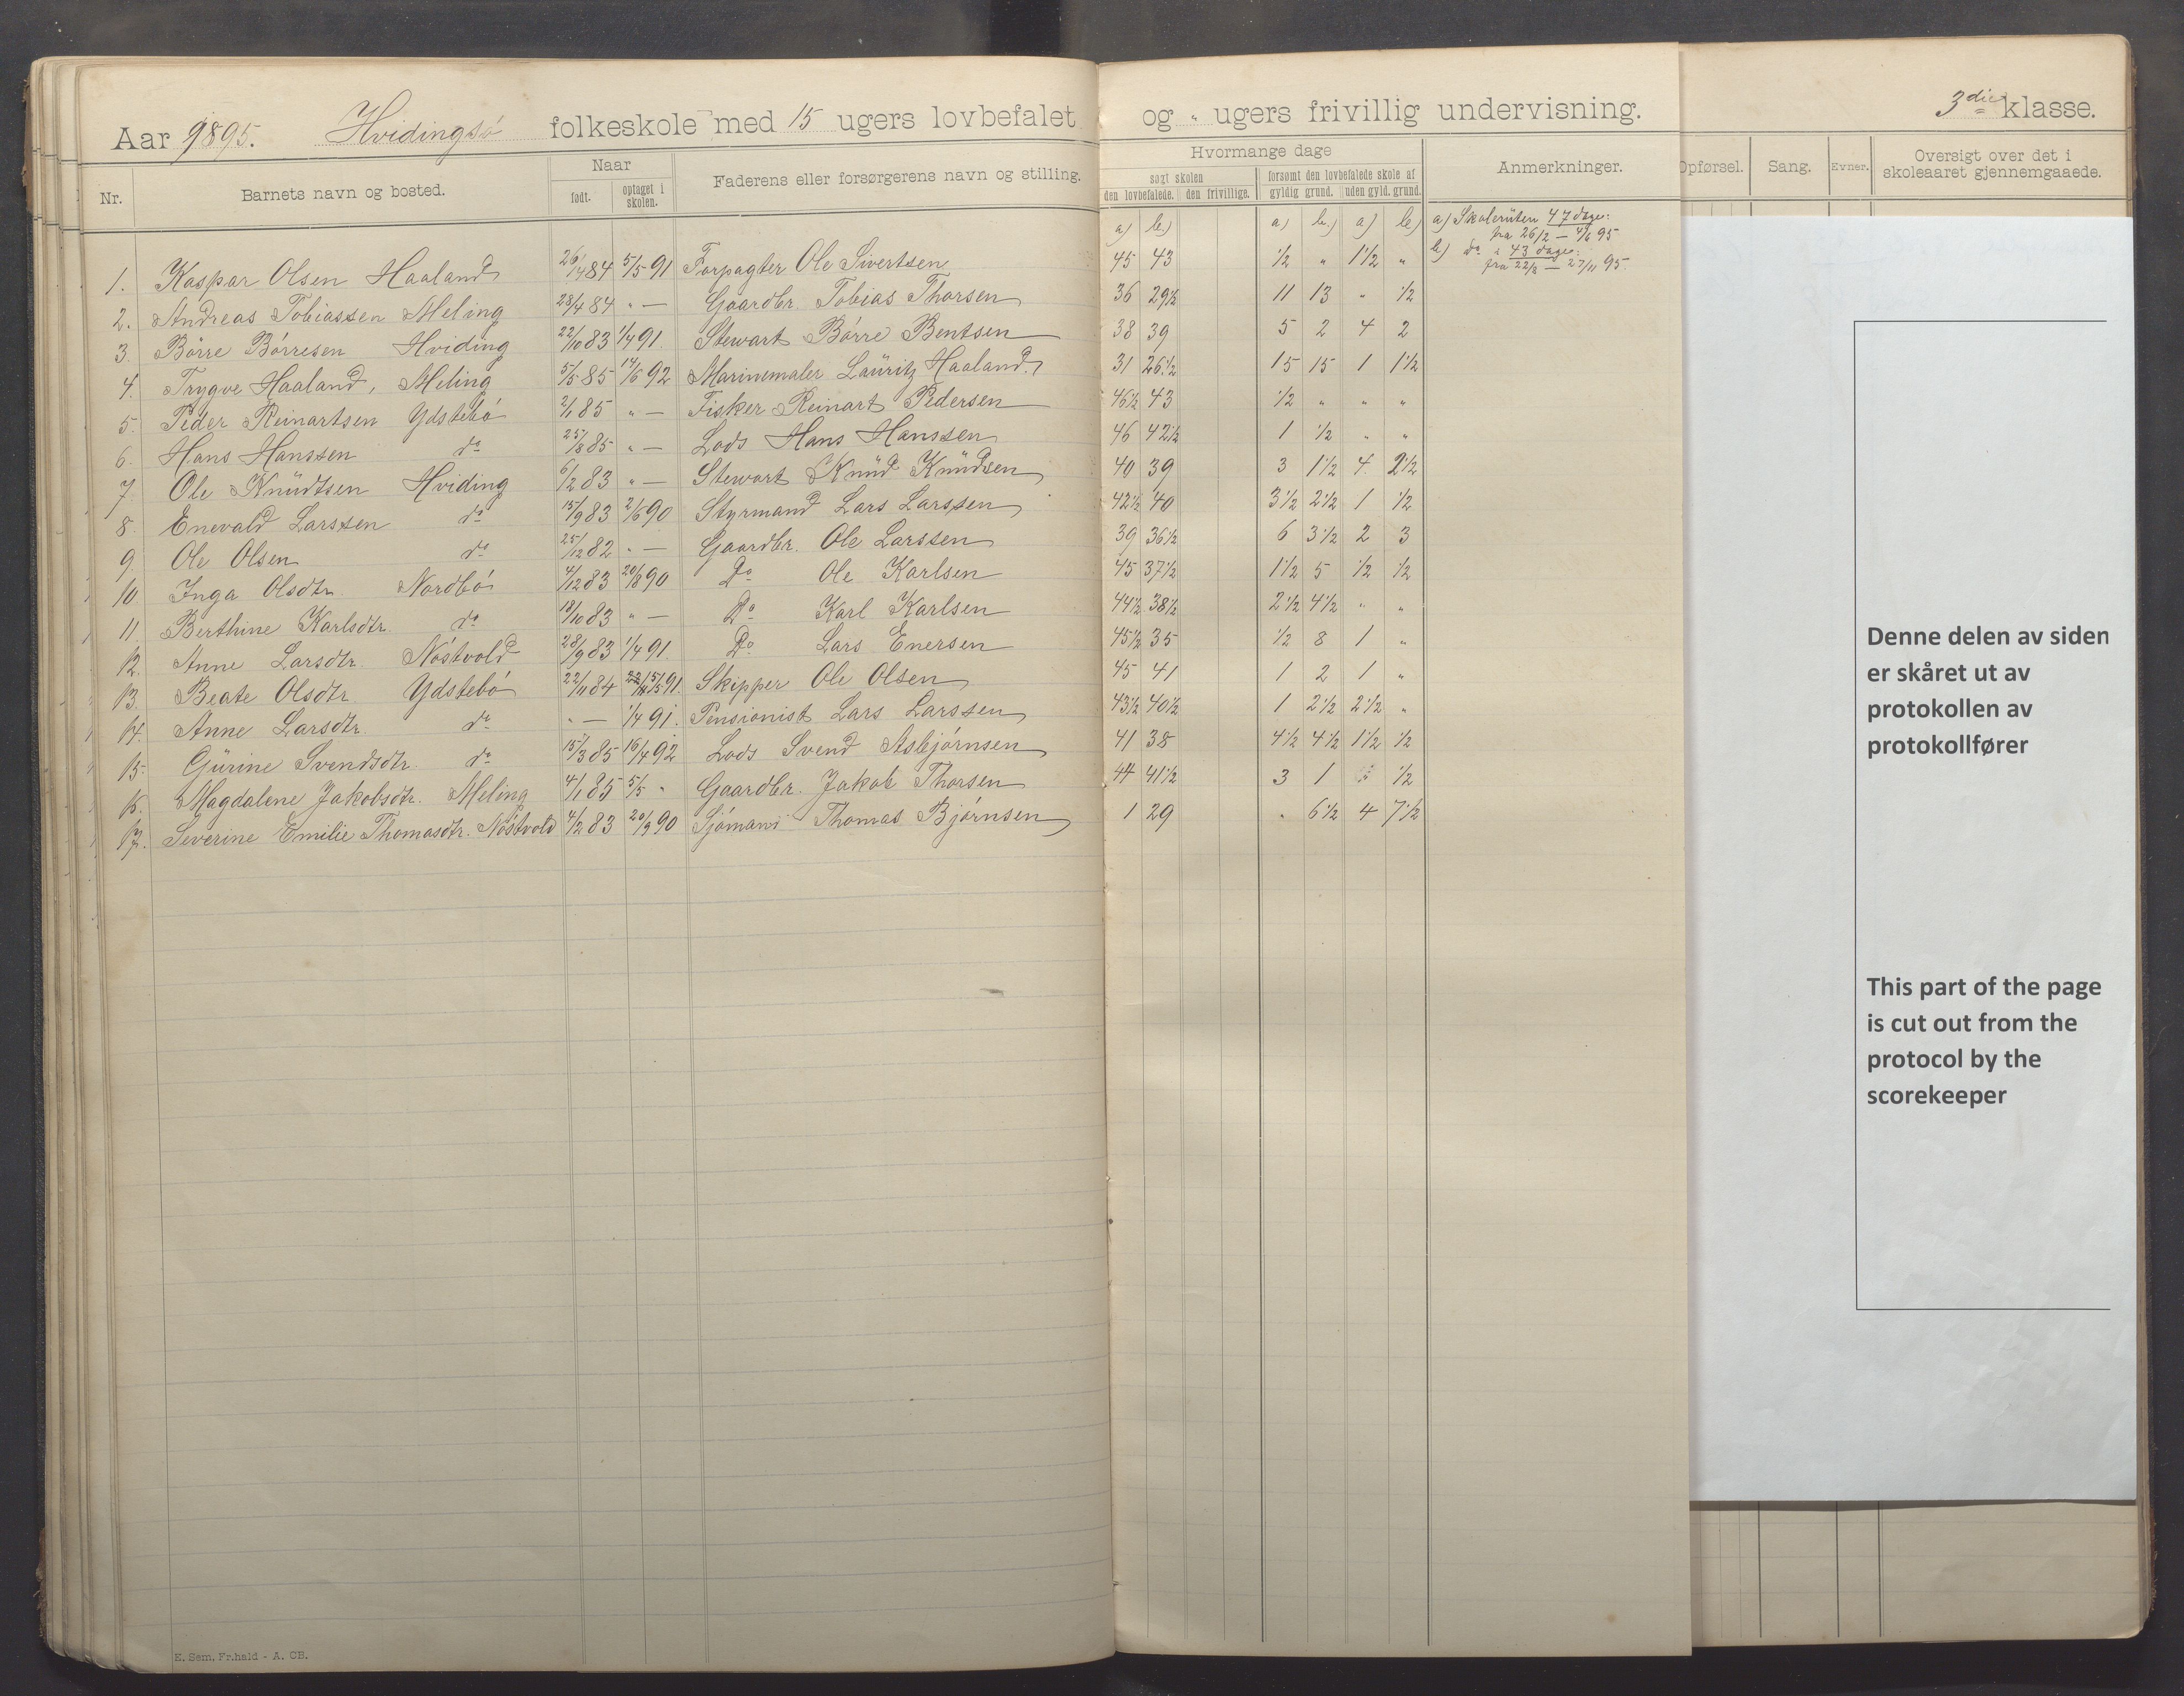 Aar 1895. Hvidingsö folkeskole med 15 ugers lovbefalet og " ugers frivillig undervisning. 3die klasse.
Nr. Barnets navn og bosted. Naar født. optaget i skolen. Faderens eller forsørgerens navn og stilling. Hvormange dage søgt skolen den lovbefalede. den frivillige. forsømt den lovbefalede skole af gyldig grund. uden gyld. grund. Anmerkninger. Opførsel. Sang. Evner. Oversigt over det i skoleaaret gjennemgaaede.
a) b) a) b) a) b) a) Skoleruten 47 dage:
fra 26/2 — 4/6 95
b) do " 43 dage:
fra 22/8 — 27/11 95.
1. Kaspar Olsen Haaland 26/4 84 5/5 91 Forpagter Ole Sivertsen 45 43 1/2 " 1 1/2 "
2. Andreas Tobiassen Meling 28/4 84 " — Gaardbr. Tobias Thorsen 36 29 1/2 11 13 " 1/2
3. Börre Börresen Hviding 22/10 83 1/4 91. Stewart Börre Bentsen 38 39 5 2 4 2
4. Trygve Haaland, Meling 5/5 85 14/6 92 Marinemaler Lauritz Haaland. 31 26 1/2 15 15 1 1 1/2
5. Peder Reinartsen Ydstebö 2/1 85 " — Fisker Reinart Pedersen 46 1/2 43 1/2 " " "
6. Hans Hanssen do 25/8 85 " — Lods Hans Hanssen 46 42 1/2 1 1/2 " "
7. Ole Knudtsen Hviding 6/2 83 " — Stewart Knud Knudsen 40 39 3 1 1/2 4 2 1/2
8. Enevald Larssen do 15/9 83 2/6 90 Styrmand Lars Larssen 42 1/2 40 3 1/2 2 1/2 1 1/2
9. Ole Olsen do 25/12 82 " — Gaardbr. Ole Larssen 39 36 1/2 6 3 1/2 2 3
10 Inga Olsdtr. Nordbö 4/12 83 20/8 90 Do Ole Karlsen 45 37 1/2 1 1/2 5 1/2 1/2
11. Berthine Karlsdtr. do 18/10 83 " — Do Karl Karlsen 44 1/2 38 1/2 2 1/2 4 1/2 " "
12. Anne Larsdtr. Nöstvold 28/9 83 1/4 91. Do Lars Enersen 45 1/2 35 1/2 8 1 "
13. Beate Olsdtr. Ydstebö 22/11 84 5/5 91. Skipper Ole Olsen 45 41 1 2 1 "
14. Anne Larsdtr. do " — 1/4 91. Pensionist Lars Larssen 43 1/2 40 1/2 1 2 1/2 2 1/2 "
15. Gurine Svendsdtr. do 15/3 85 16/4 92 Lods Svend Asbjörnsen 41 38 4 1/2 4 1/2 1 1/2 1/2
16. Magdalene Jakobsdtr. Meling 4/1 85 5/5 " Gaardbr. Jakob Thorsen 44 41 1/2 3 1 " 1/2
17. Severine Emilie Thomasdtr. Nöstvold 4/2 83 20/9 90 Sjömand Thomas Bjørnsen 1 29 " 6 1/2 4 7 1/2
Denne delen av siden
er skåret ut av
protokollen av
protokollfører
This part of the page
is cut out from the
protocol by the
scorekeeper
E. Sem, Fr.hald - A. CB.